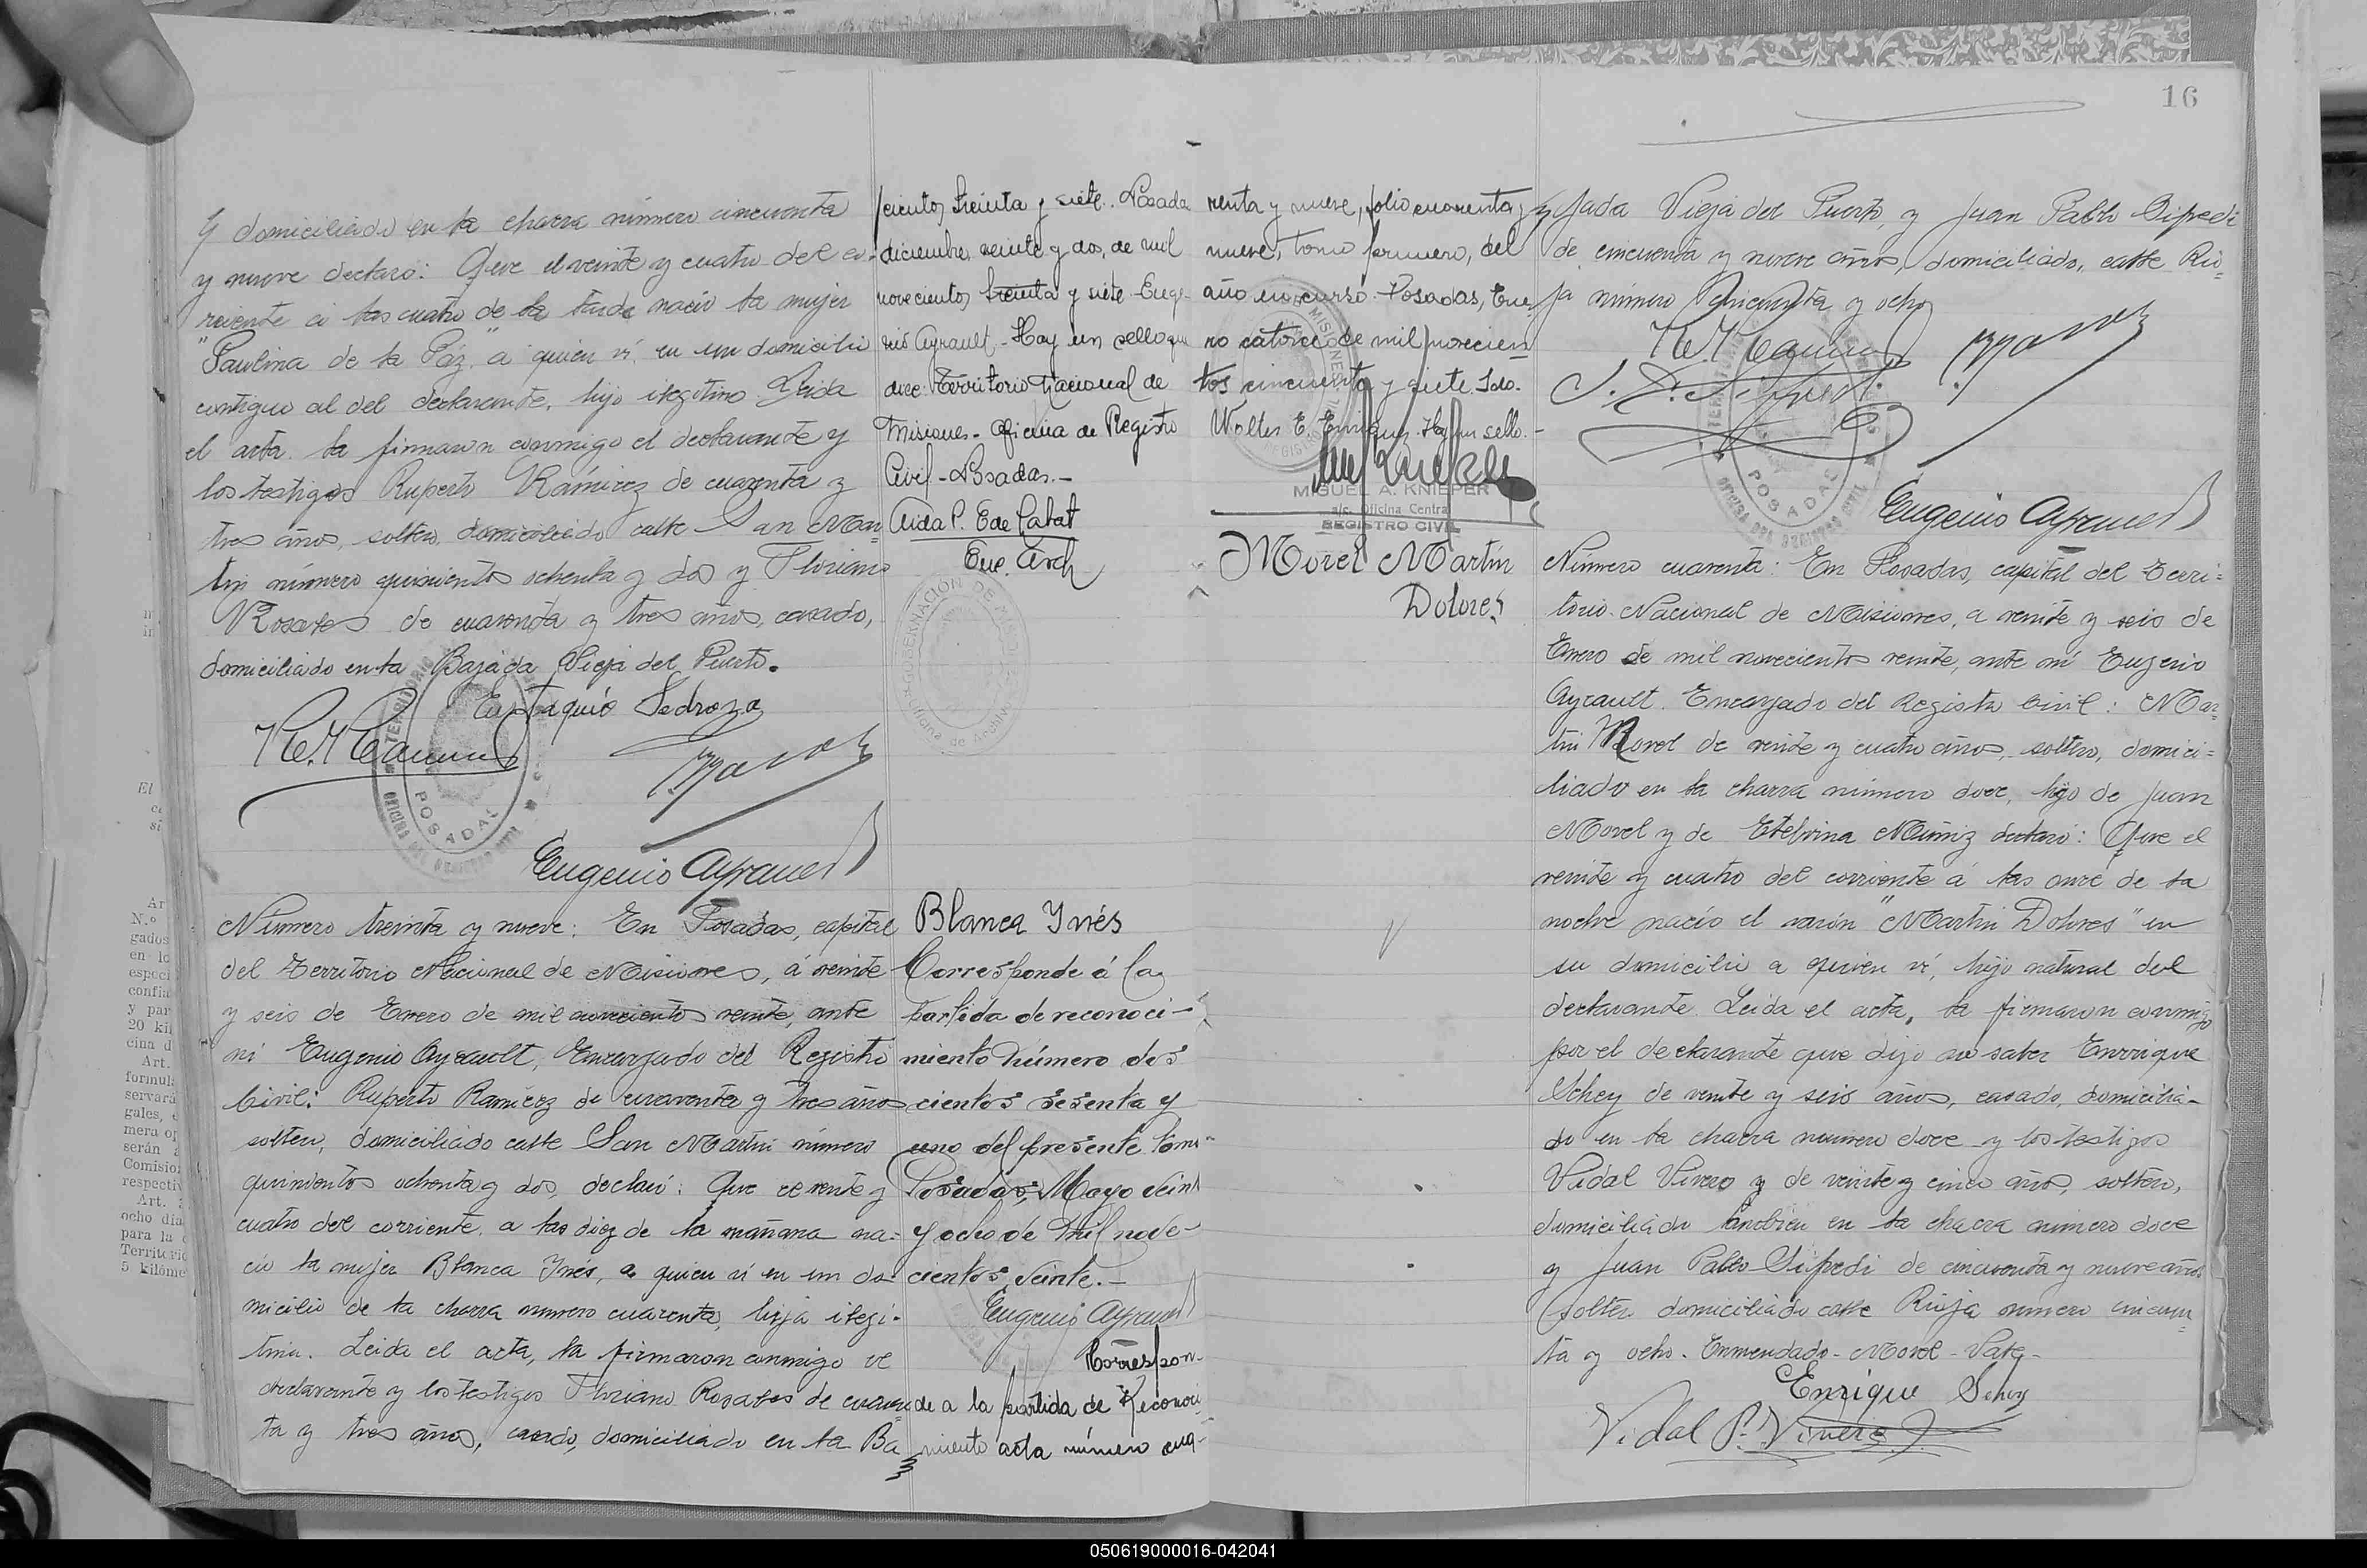 16
y domiciliado en la chacra número cincuenta
y nueve declaró: Que el veinte y cuatro del co-
rriente á las cuatro de la tarde nació la mujer
"Paulina de la Páz" a quien ví en un domicilio
contiguo al del declarante, hijo ilegitimo. Leida
el acta la firmaron conmigo el declarante y
los testigos Ruperto Ramírez de cuarenta y
tres años, soltero, domiciliado calle San Mar-
tin número quinientos ochenta y dos y Floriano
Rosales de cuarenta y tres años, casado,
domiciliado en la Bajada Vieja del Puerto.
Eustaquio Pedroza
Eugenio Ayrault
POSADAS
Número treinta y nueve: En Posadas, capital
del Territorio Nacional de Misiones, á veinte
y seis de Enero de mil novecientos veinte, ante
mi Eugenio Ayrault, Encargado del Registro
Civil: Ruperto Ramírez de cuarenta y tres años
soltero, domiciliado calle San Martin número
quinientos ochenta y dos, declaró: Que el veinte y
cuatro del corriente a las diez de la mañana na-
ció la mujer Blanca Ynés, a quien ví en un do-
micilio de la chacra número cuarenta, hija ilegi-
tima. Leida el acta, la firmaron conmigo el
declarante y los testigos Floriano Rosales de cuaren-
ta y tres años, casado, domiciliado en la Ba
cientos treinta y siete. Posada
diciembre veinte y dos, de mil
novecientos treinta y siete. Euge-
nio Ayrault.- Hay un sello que
dice: Territorio Nacional de
Misiones.- Oficina de Registro
Civil - Posadas.-
Aida P. E de Labat
Enc. Arch
GOBERNACIÓN DE MISIONES
Oficina de Archivo
Blanca Ynés
Corresponde á la
partida de reconoci-
miento número dos
cientos sesenta y
uno del presente tomo
Posadas, Mayo veint
y ocho de mil nove-
cientos veinte.-
Eugenio Ayrault
Correspon-
de a la partida de Reconoci-
miento acta número cua-
renta y nueve, folio cuarenta y
nueve, tomo primero, del
año en curso. Posadas, Ene-
ro catorce de mil novecien
tos cincuenta y siete. Fdo.
Walter E. Enriquez. Hay un sello.-
MIGUEL A. KNIEPER
a/c. Oficina Central
REGISTRO CIVIL
Morel Martín
Dolores
jada Vieja del Puerto, y Juan Pablo Sifredi
de cincuenta y nueve años, domiciliado, calle Rio-
ja número cincuenta y ocho
POSADAS
Eugenio Ayrault
Número cuarenta: En Posadas, capital del Terri-
torio Nacional de Misiones, a veinte y seis de
Enero de mil novecientos veinte, ante mí Eugenio
Ayrault. Encargado del Registro Civil: Mar-
tin Morel de veinte y cuatro años, soltero, domici-
liado en la chacra número doce, hijo de Juan
Morel y de Etelvina Muñiz declaró: Que el
veinte y cuatro del corriente á las once de la
noche nació el varón "Martin Dolores" en
su domicilio a quien ví, hijo natural del
declarante. Leida el acta, la firmaron conmigo
por el declarante que dijo no saber Enrrique
Schey de veinte y seis años, casado, domicilia-
do en la chacra numero doce y los testigos
Vidal Vivero y de veinte y cinco años, soltero,
domiciliado tambien en la chacra número doce
y Juan Pablo Sifredi de cincuenta y nueve años
soltero domiciliado calle Rioja número cincuen-
ta y ocho. Enmendado - Morel - Vale -
Enrique Schey
Vidal P. Vivero
050619000016-042041